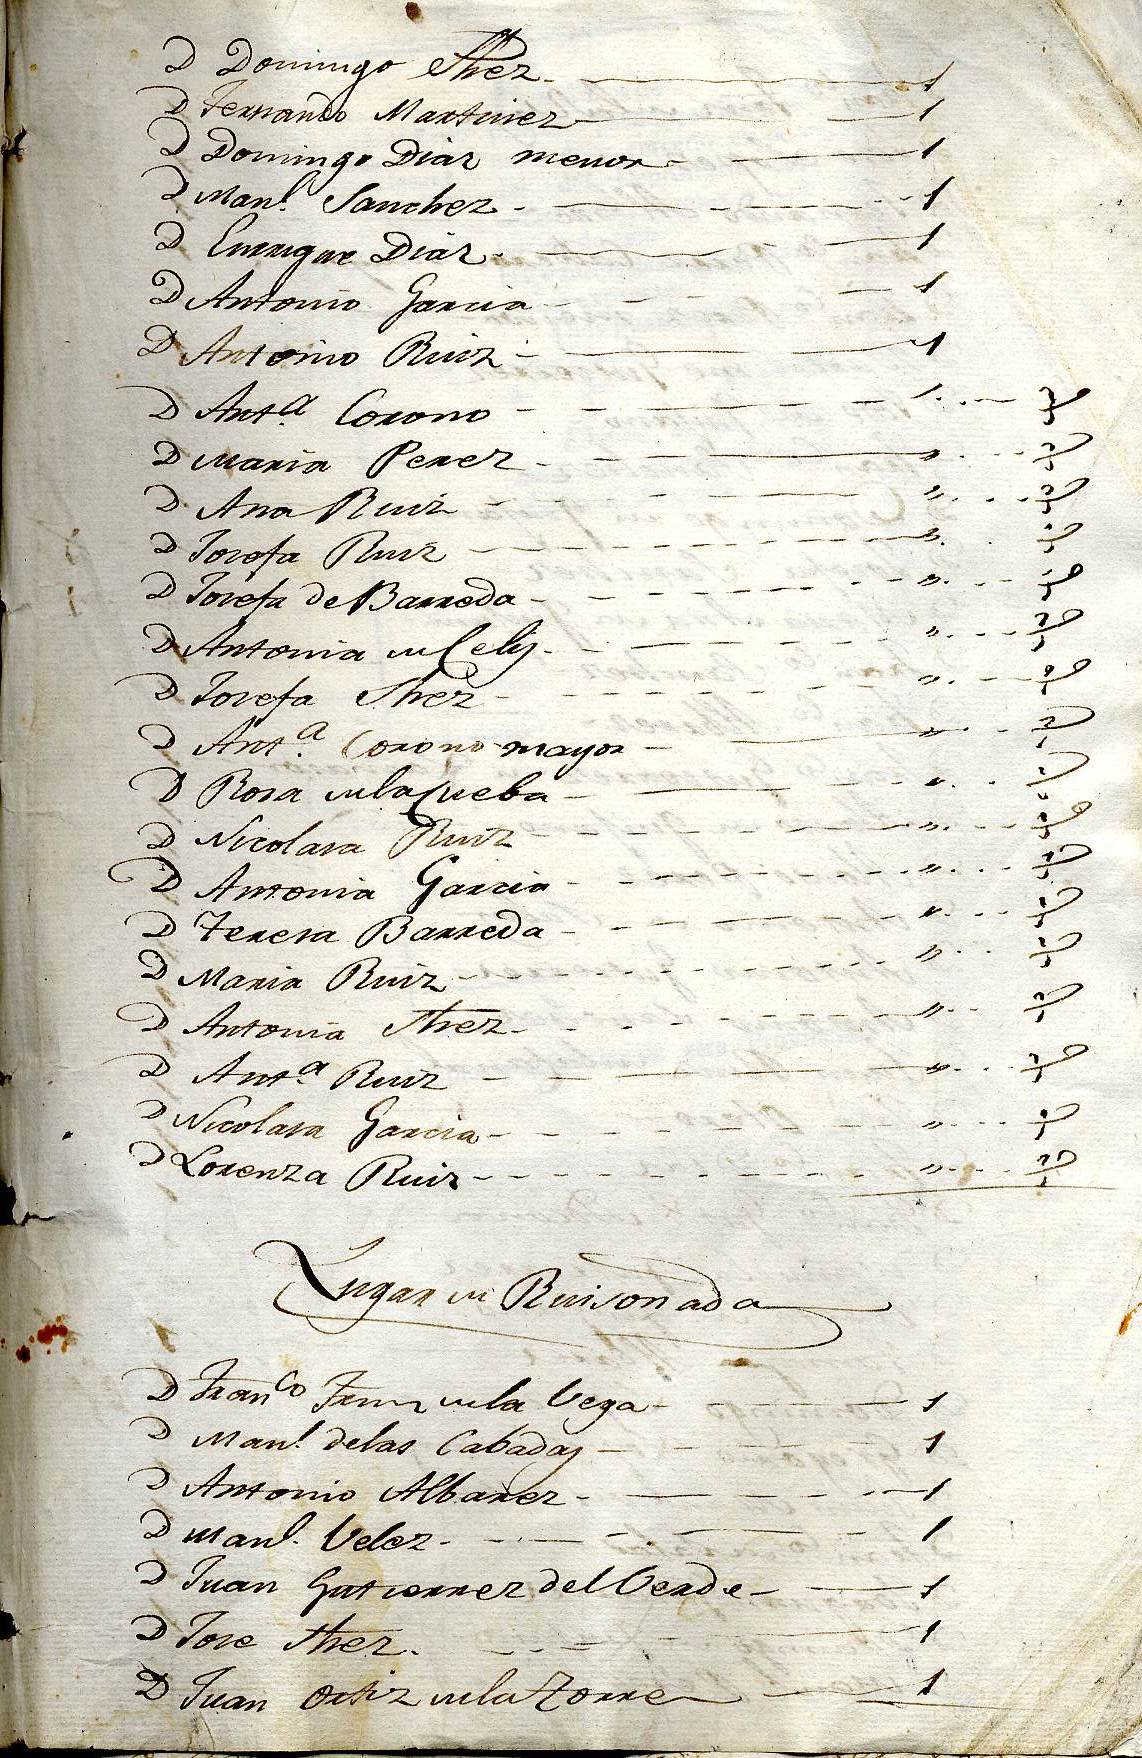 D Domingo Shez. 1
D Fernando Martinez 1
D Domingo Diaz menor 1
D Manl. Sanchez 1
D Enrrique Diaz 1
D Antonio Garcia 1
D Antonio Ruiz 1
D Anta. Corono
D Maria Perez "
D Ana Ruiz "
D Josefa Ruiz "
D Josefa de Barreda "
D Antonia de Celis "
D Josefa Shez "
D Anta. Corono mayor "
D Rosa de la Cueba "
D Nicolasa Ruiz "
D Antonia Garcia "
D Teresa Barreda "
D Maria Ruiz "
D Antonia Shez "
D Anta. Ruiz "
D Nicolasa Garcia "
D Lorenza Ruiz "
Lugar de Ruisonada
D Franco de la Vega 1
D Manl. de las Cabadas 1
D Antonio Albarez 1
D Manl. Velez 1
D Juan Gutierrez del Verde 1
D Jose Shez. 1
D Juan Ortiz de la Torre 1